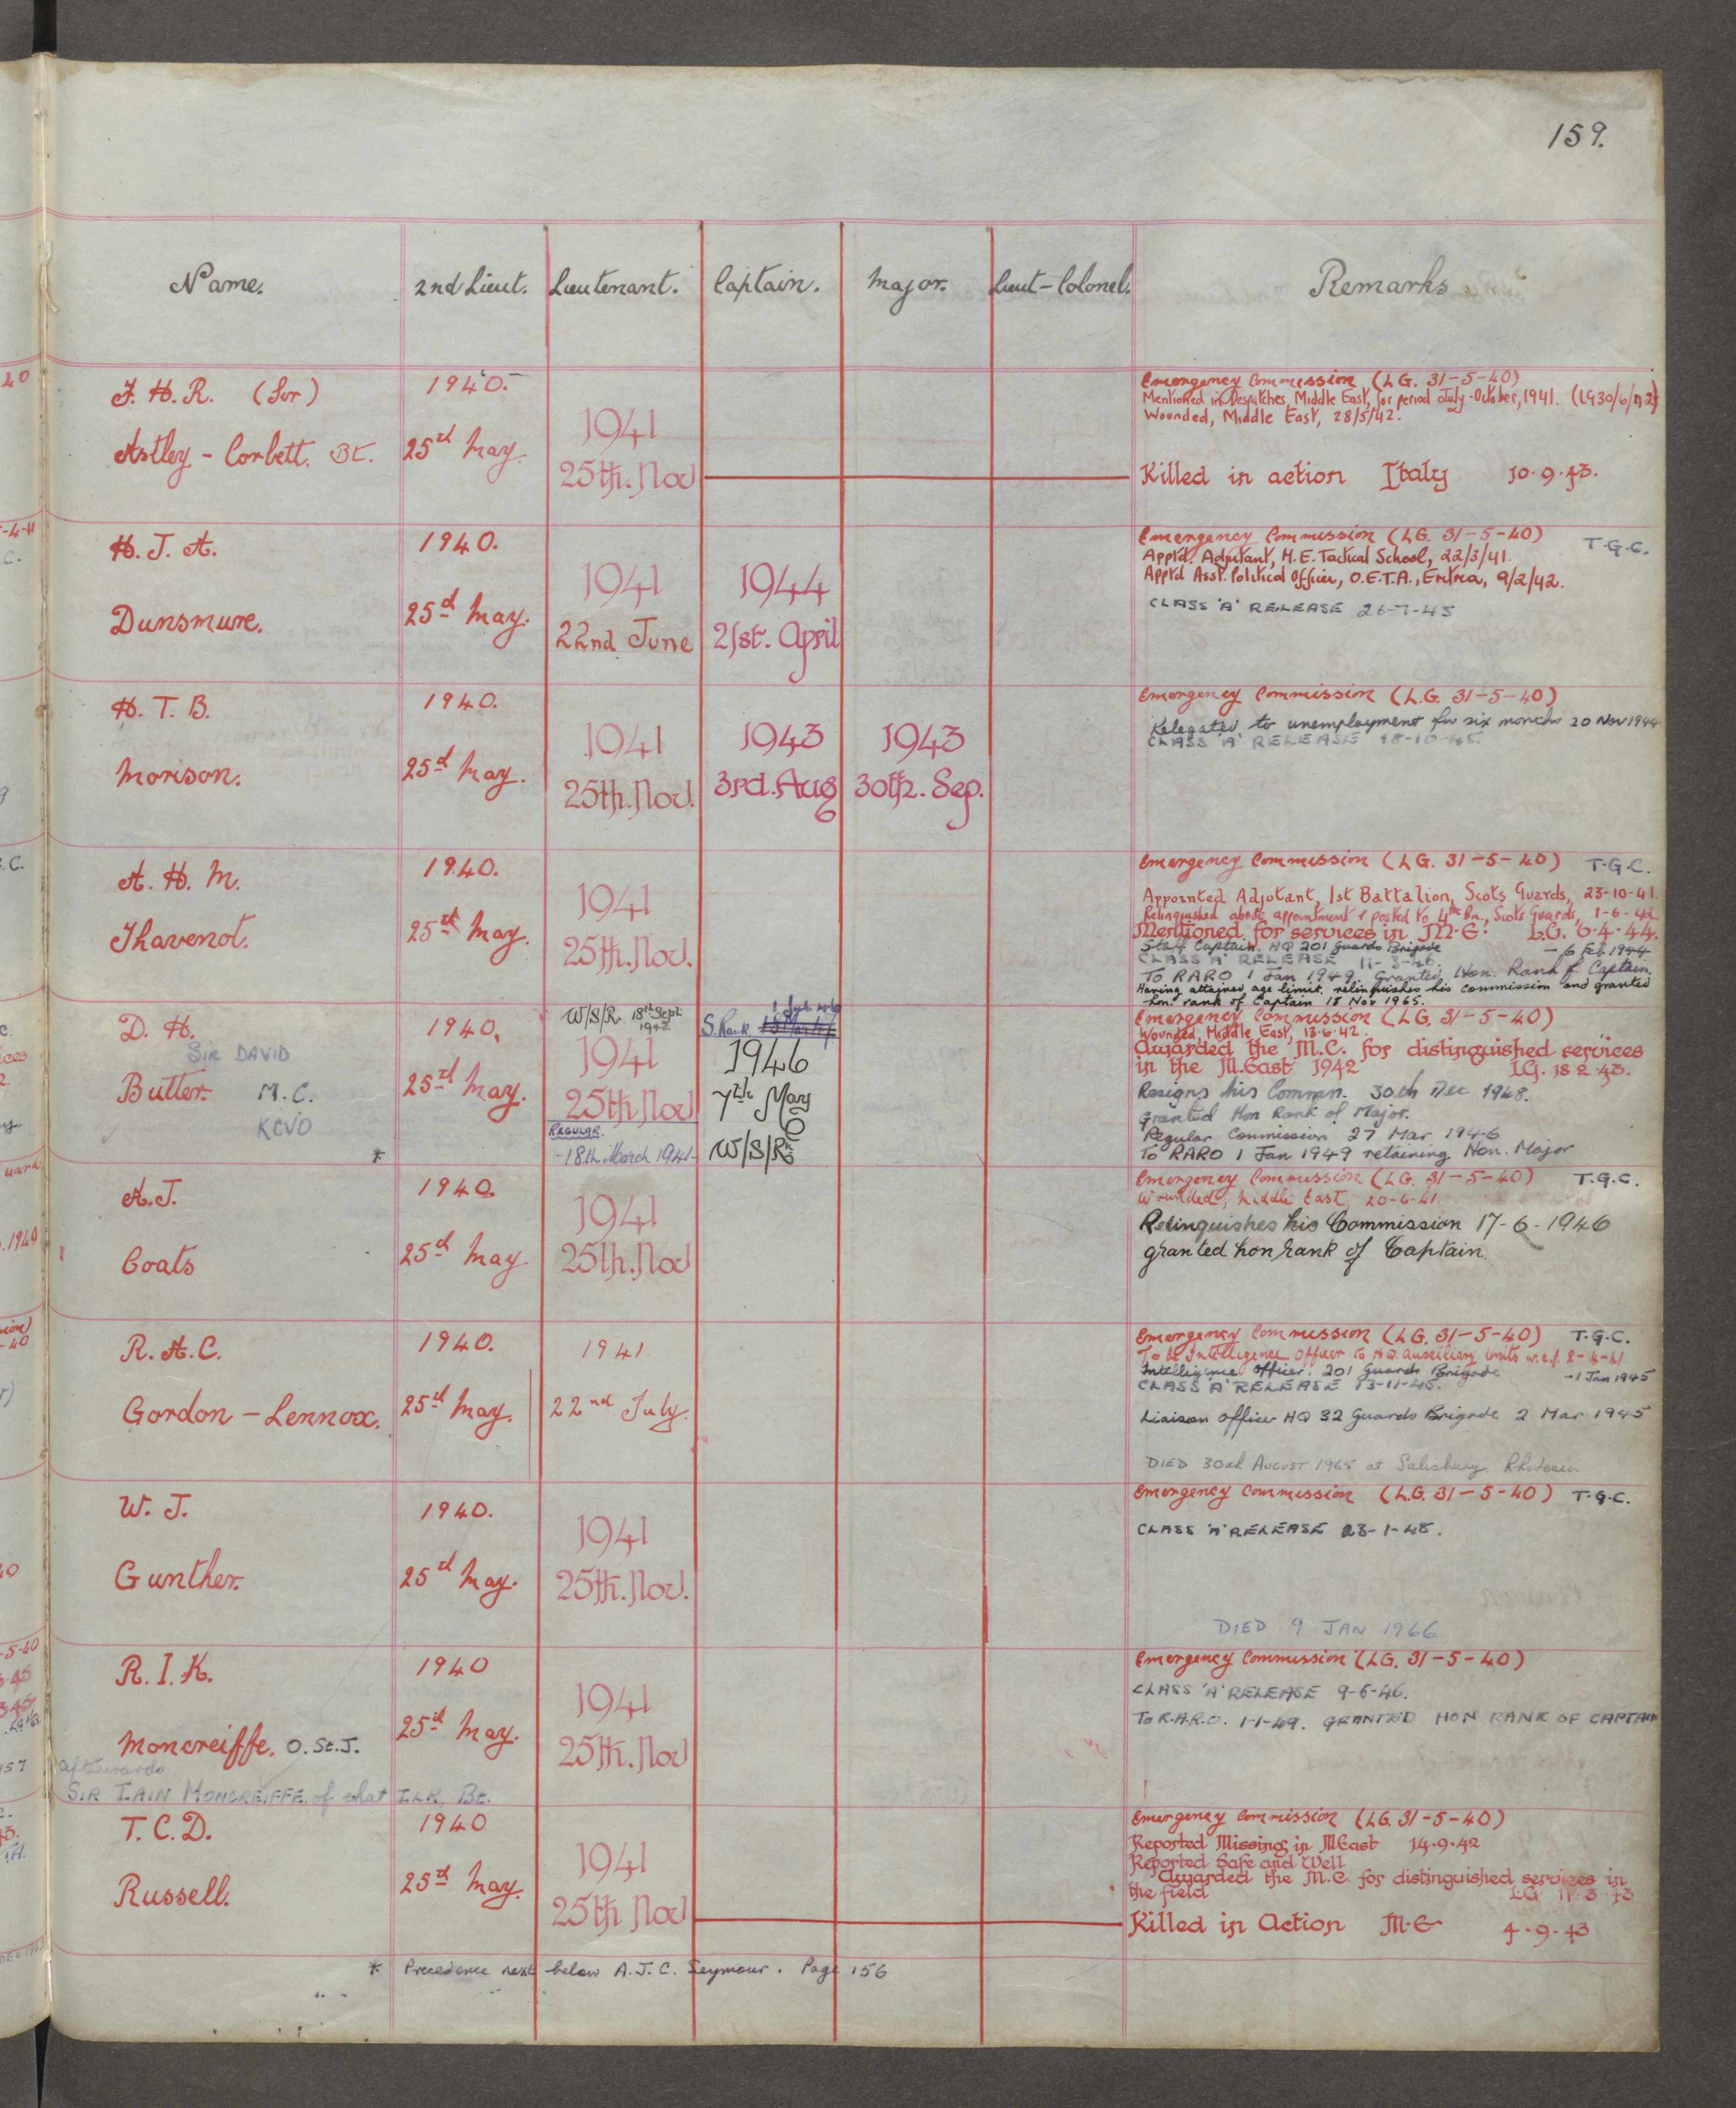 159.
Name. 2nd Lieut. Lieutenant. Captain. Major. Lieut-Colonel. Remarks
F. H. R. (Sir)
Astley - Corbett. Bt.
1940.
25th May.
1941
25th. Nov
Emergency Commission (L.G. 31-5-40)
Mentioned in Despatches, Middle East, for period July-October, 1941. (LG 30/6/42)
Wounded, Middle East, 28/5/42.
Killed in action Italy 10.9.43.
H. J. A.
Dunsmure.
1940.
25th May.
1941
22nd June
1944
21st. April
Emergency Commission (L.G. 31-5-40) T.G.C.
Apptd. Adjutant, M.E. Tactical School, 22/3/41.
Apptd Asst. Political Officer, O.E.T.A., Eritrea, 9/2/42.
CLASS 'A' RELEASE 26-7-45
H. T. B.
Morison.
1940.
25th May.
1941
25th. Nov.
1943
3rd. Aug
1943
30th. Sep.
Emergency Commission (L.G. 31-5-40)
Relegated to unemployment for six months 20 Nov 1944
CLASS 'A' RELEASE 18-10-45.
A. H. M.
Thavenot.
1940.
25th May.
1941
25th. Nov.
Emergency Commission (L.G. 31-5-40) T.G.C.
Appointed Adjutant, 1st Battalion, Scots Guards, 23-10-41.
Relinquished above appointment & posted to 4th Bn., Scots Guards, 1-6-42.
Mentioned for services in M.E. L.G. 6.4.44.
Staff Captain. HQ 201 Guards Brigade - 6 Feb 1944
CLASS 'A' RELEASE 11-3-46.
To RARO 1 Jan 1949. Granted Hon. Rank of Captain.
Having attained age limit, relinquishes his commission and granted
hon. rank of Captain 18 Nov 1965.
D. H.
Sir DAVID
Butter. M.C.
KCVO
*
1940.
25th May.
W/S/R. 18th Sept
1942
1941
25th Nov
REGULAR.
-18th March 1941-
S. Rank
1946
7th May
W/S/R
Emergency Commission (L.G. 31-5-40)
Wounded, Middle East, 13.6.42.
Awarded the M.C. for distinguished services
in the M.East 1942 LG. 18 2 43.
Resigns his Commn. 30th Dec 1948.
granted Hon Rank of Major.
Regular Commission 27 Mar 1946
To RARO 1 Jan 1949 retaining Hon. Major
A. J.
Coats
1940.
25th May.
1941
25th. Nov
Emergency Commission (L.G. 31-5-40) T.G.C.
Wounded, Middle East, 20-6-41.
Relinquishes his Commission 17-6-1946
granted hon rank of Captain.
R. A. C.
Gordon - Lennox.
1940.
25th May.
1941
22nd July.
Emergency Commission (L.G. 31-5-40) T.G.C.
To be Intelligence Officer to H.Q. Auxiliary Units w.e.f. 2-4-41
Intelligence Officer. 201 Guards Brigade -1 Jan 1945
CLASS 'A' RELEASE 13-11-45.
Liaison Officer HQ 32 Guards Brigade 2 Mar 1945
DIED 30th AUGUST 1965 at Salisbury, Rhodesia
W. J.
Gunther.
1940.
25th May.
1941
25th. Nov.
Emergency Commission (L.G. 31-5-40) T.G.C.
CLASS 'A' RELEASE 23-1-45.
DIED 9 JAN 1966
R. I. K.
Moncreiffe. O.St.J.
afterwards
SIR IAIN MONCREIFFE of that ILK Bt.
1940
25th May.
1941
25th. Nov
Emergency Commission (L.G. 31-5-40)
CLASS 'A' RELEASE 9-6-46.
To R.A.R.O. 1-1-49. GRANTED HON RANK OF CAPTAIN
T. C. D.
Russell.
1940
25th May.
1941
25th Nov
Emergency Commission (L.G. 31-5-40)
Reported Missing in M.East 14.9.42
Reported Safe and Well
Awarded the M.C. for distinguished services in
the field LG 11.3.43
Killed in Action M.E 4.9.43
* Precedence next below A. J. C. Seymour. Page 156